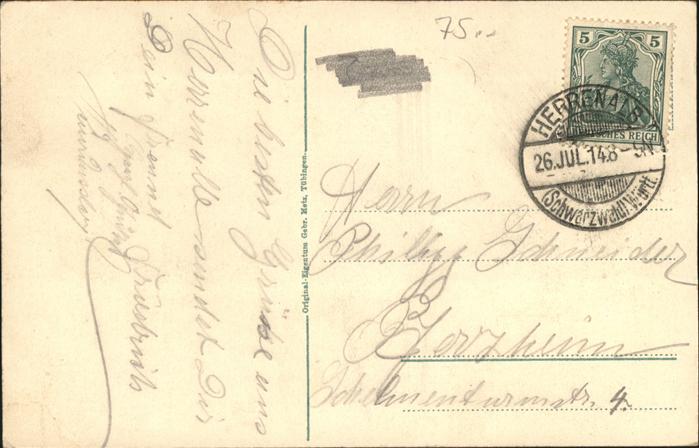 Die besten Grüße aus
Herrenalb sendet Dir
Dein Freund
Friedrich
75.-
5 5
DEUTSCHES REICH
HERRENALB
26.JUL.14.8-9N
(Schwarzwald) Württ.
Original-Eigentum Gebr. Metz, Tübingen.
Herrn
Philipp Schneider
Pforzheim
Schelmenturmstr. 4.